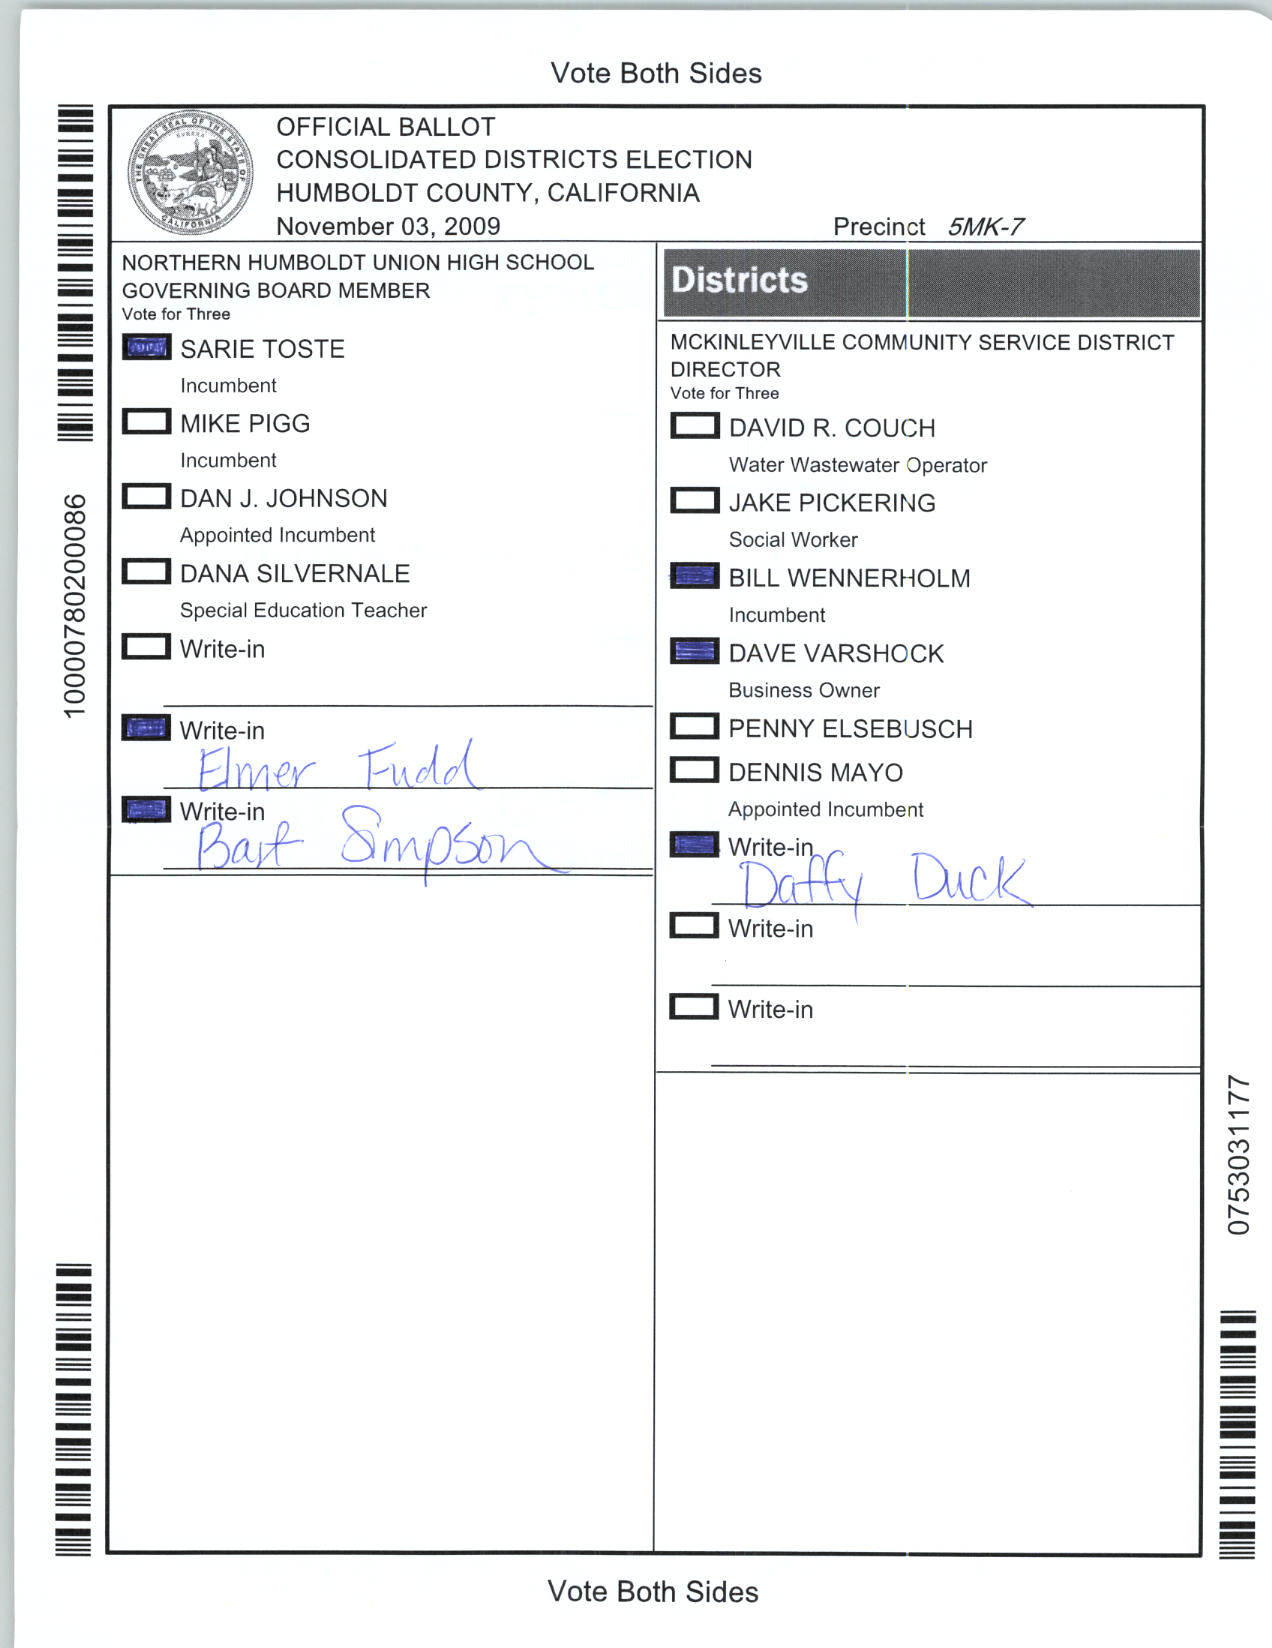 Vote Both Sides
OFFICIAL BALLOT
CONSOLIDATED DISTRICTS ELECTION
HUMBOLDT COUNTY, CALIFORNIA
November 03, 2009
Precinct 5MK-7
THE GREAT SEAL OF THE STATE OF CALIFORNIA
EUREKA
100007802000086
NORTHERN HUMBOLDT UNION HIGH SCHOOL
GOVERNING BOARD MEMBER
Vote for Three
SARIE TOSTE
Incumbent
MIKE PIGG
Incumbent
DAN J. JOHNSON
Appointed Incumbent
DANA SILVERNALE
Special Education Teacher
Write-in
Write-in
Elmer Fudd
Write-in
Bart Simpson
Districts
MCKINLEYVILLE COMMUNITY SERVICE DISTRICT
DIRECTOR
Vote for Three
DAVID R. COUCH
Water Wastewater Operator
JAKE PICKERING
Social Worker
BILL WENNERHOLM
Incumbent
DAVE VARSHOCK
Business Owner
PENNY ELSEBUSCH
DENNIS MAYO
Appointed Incumbent
Write-in
Daffy Duck
Write-in
Write-in
0753031177
Vote Both Sides